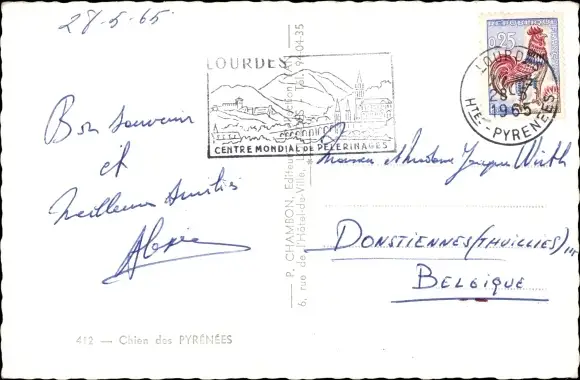 28-5-65
LOURDES
CENTRE MONDIAL DE PÈLERINAGES
0,25
LOURDES
28-5
1965
HTES-PYRENÉES
Bon souvenir
et
Meilleures Amitiés
Monsieur & Madame Jacques Wirth
DONSTIENNES (THUILLIES)
BELGIQUE
P. CHAMBON, Editeur
6, rue de l'Hôtel-de-Ville, Tél. 94-04-35
412 — Chien des PYRÉNÉES